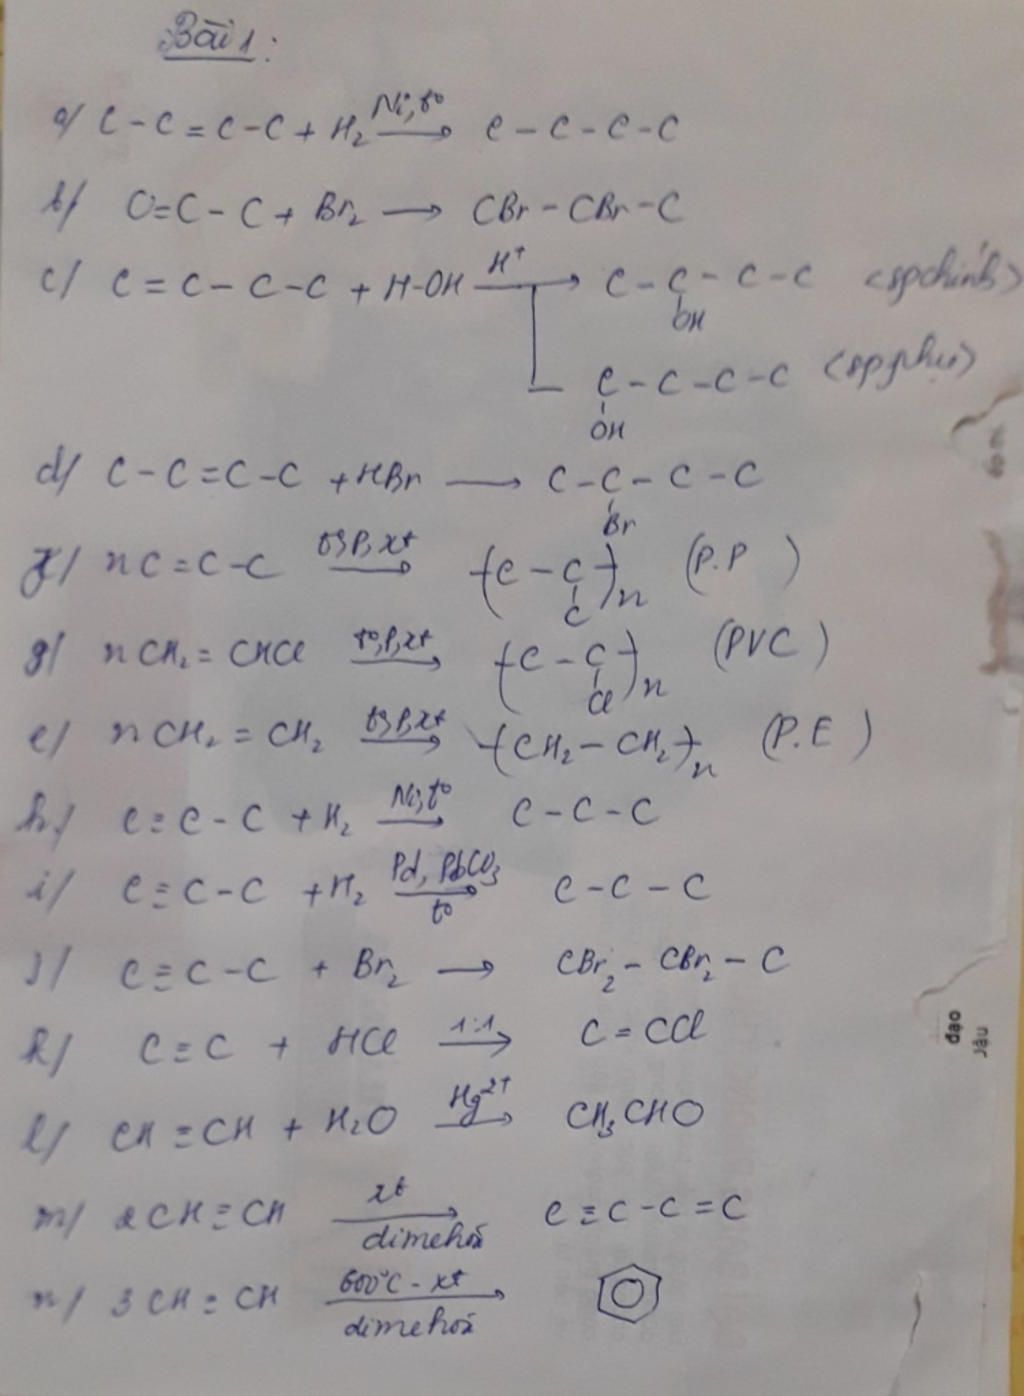 Bài 1:
a/ C-C=C-C + H₂ Ni,t° → C-C-C-C
b/ C=C-C + Br₂ → CBr-CBr-C
c/ C=C-C-C + H-OH H⁺ → C-C-C-C (spchính)
OH
C-C-C-C (spphụ)
OH
d/ C-C=C-C + HBr → C-C-C-C
Br
f/ nC=C-C t°,P,xt → (C-C)n (P.P)
C
g/ nCH₂=CHCl t°,P,xt → (C-C)n (PVC)
Cl
e/ nCH₂=CH₂ t°,P,xt → (CH₂-CH₂)n (P.E)
h/ C≡C-C + H₂ Ni,t° → C-C-C
i/ C≡C-C + H₂ Pd, PbCO₃ → C-C-C
t°
j/ C≡C-C + Br₂ → CBr₂-CBr₂-C
k/ C≡C + HCl 1:1 → C=CCl
l/ CH≡CH + H₂O Hg²⁺ → CH₃CHO
m/ 2CH≡CH xt → C≡C-C=C
dimehoá
n/ 3CH≡CH 600°C - xt →
dimehoá
đạo